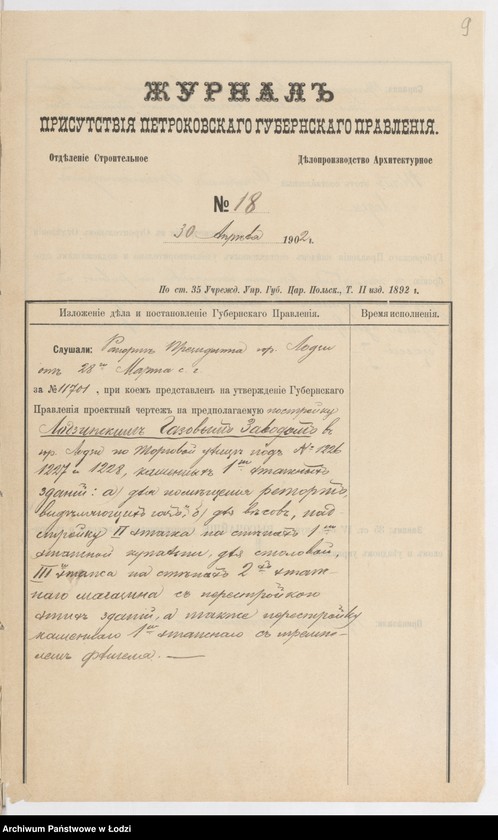 9
ЖУРНАЛЪ
ПРИСУТСТВІЯ ПЕТРОКОВСКАГО ГУБЕРНСКАГО ПРАВЛЕНІЯ.
Отдѣленіе Строительное Дѣлопроизводство Архитектурное
№ 18
30 Апрѣля 1902 г.
По ст. 35 Учрежд. Упр. Губ. Цар. Польск., Т. II изд. 1892 г.
Изложеніе дѣла и постановленіе Губернскаго Правленія. Время исполненія.
Слушали: Рапортъ Президента гор. Лодзи
отъ 28го Марта с. г.
за № 11701, при коемъ представленъ на утвержденіе Губернскаго
Правленія проектный чертежъ на предполагаемую постройку
Лодзинскимъ Газовымъ Заводомъ въ
гор. Лодзи по Торговой улицѣ подъ № 1226
1227 и 1228, каменныхъ 1но этажныхъ
зданій: а) для помѣщенія ретортъ,
газъ, б) для вѣсовъ, над-
стройку II этажа на стѣнахъ 1но
этажной для столовой,
III этажа на стѣнахъ 2хъ этаж-
наго магазина съ перестройкою
этихъ зданій, а также перестройку
каменнаго 1но этажнаго съ тремпе-
лемъ флигеля. —
Archiwum Państwowe w Łodzi